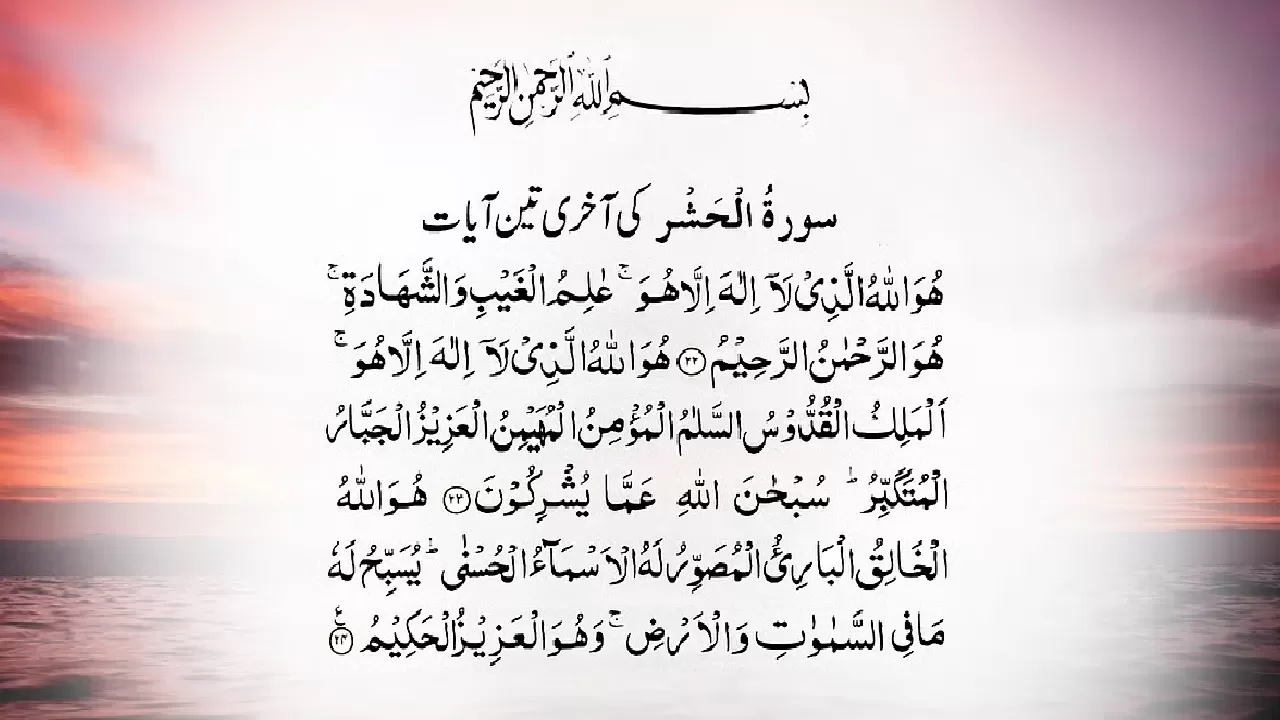 بِسْمِ اللهِ الرَّحْمٰنِ الرَّحِيْمِ
سورۃُ الْحَشْر کی آخری تین آیات
هُوَ اللهُ الَّذِىْ لَاۤ اِلٰهَ اِلَّا هُوَ ۚ عٰلِمُ الْغَيْبِ وَالشَّهَادَةِ ۚ
هُوَ الرَّحْمٰنُ الرَّحِيْمُ ﴿۲۲﴾ هُوَ اللهُ الَّذِىْ لَاۤ اِلٰهَ اِلَّا هُوَ ۚ
اَلْمَلِكُ الْقُدُّوْسُ السَّلٰمُ الْمُؤْمِنُ الْمُهَيْمِنُ الْعَزِيْزُ الْجَبَّارُ
الْمُتَكَبِّرُ ؕ سُبْحٰنَ اللهِ عَمَّا يُشْرِكُوْنَ ﴿۲۳﴾ هُوَ اللهُ
الْخَالِقُ الْبَارِئُ الْمُصَوِّرُ لَهُ الْاَسْمَآءُ الْحُسْنٰى ؕ يُسَبِّحُ لَهٗ
مَا فِى السَّمٰوٰتِ وَالْاَرْضِ ۚ وَهُوَ الْعَزِيْزُ الْحَكِيْمُ ﴿۲۴﴾ ع